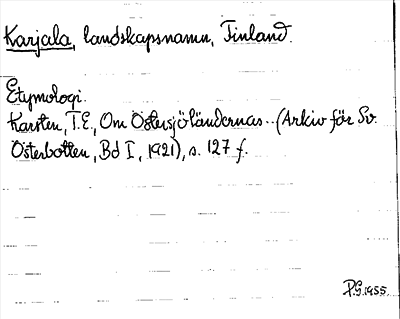 Karjala, landskapsnamn, Finland.
Etymologi.
Karsten, T.E., Om Östersjöländernas.. (Arkiv för Sv.
Österbotten, Bd I, 1921), s. 127 f.
P.G. 1955.